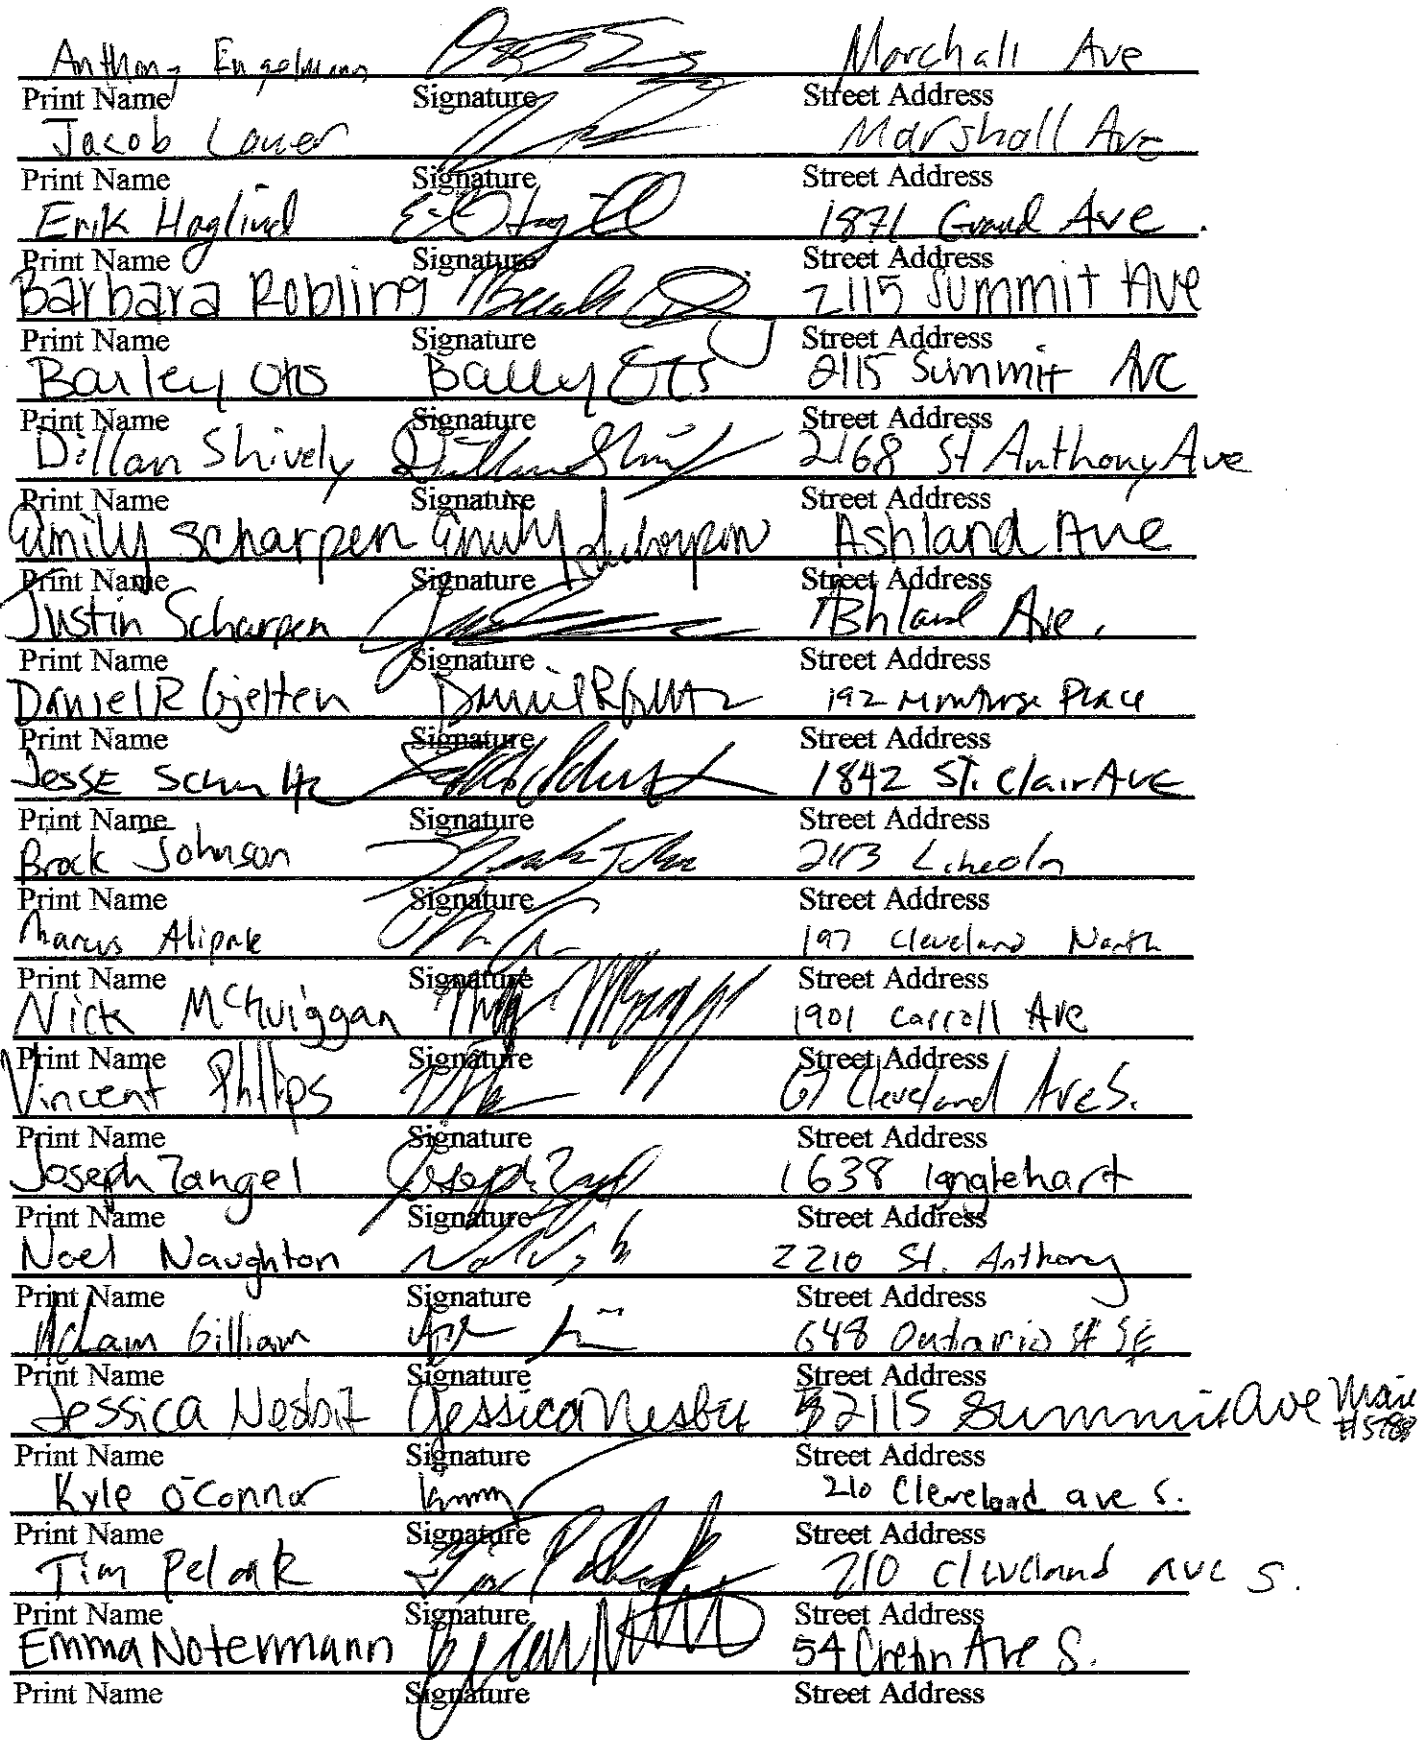 Anthony Engelmann Marchall Ave
Print Name Signature Street Address
Jacob Lauer Marshall Ave
Print Name Signature Street Address
Erik Haglind 1871 Grand Ave.
Print Name Signature Street Address
Barbara Robling 2115 Summit Ave
Print Name Signature Street Address
Bailey Otis Bailey Otis 2115 Summit Ave
Print Name Signature Street Address
Dillan Shively Dillan Shively 2168 St Anthony Ave
Print Name Signature Street Address
Emily Scharpen Emily Scharpen Ashland Ave
Print Name Signature Street Address
Justin Scharpen Ashland Ave.
Print Name Signature Street Address
Daniel R Gjelten Daniel R Gjelten 192 Montrose Place
Print Name Signature Street Address
Jesse Schultz 1842 St. Clair Ave
Print Name Signature Street Address
Brock Johnson Brock John 2113 Lincoln
Print Name Signature Street Address
Marcus Alipate 197 Cleveland North
Print Name Signature Street Address
Nick McGuiggan 1901 Carroll Ave
Print Name Signature Street Address
Vincent Philips 67 Cleveland Ave S.
Print Name Signature Street Address
Joseph Zangel Joseph Zangel 1638 Iganglehart
Print Name Signature Street Address
Noel Naughton 2210 St. Anthony
Print Name Signature Street Address
Adam Gilliam 648 Ontario St SE
Print Name Signature Street Address
Jessica Nesbit Jessica Nesbit 2115 Summit Ave
Print Name Signature Street Address
Kyle O'Connor 210 Cleveland ave S.
Print Name Signature Street Address
Tim Pelak 210 Cleveland Ave S.
Print Name Signature Street Address
Emma Notermann 54 Cretin Ave S.
Print Name Signature Street Address